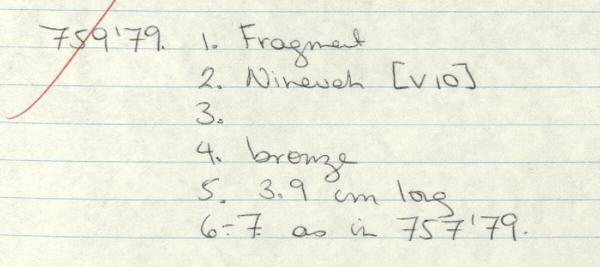 759'79. 1. Fragment
2. Nineveh [V10]
3.
4. bronze
5. 3.9 cm long
6-7. as in 757'79.